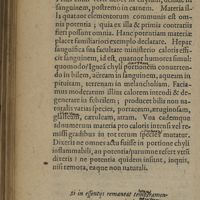 sanguinem, in pomum, in catenam. Materia il-
la quatuor elementorum communis est om-
nis potentia; quia ex illa & primis contrariis
fieri possunt omnia. Hanc potentiam materiæ
placet familiariori exemplo declarare. Hepar
sanguifica sua facultate ministerio caloris effi-
cit sanguinem, id est, quatuor humores simul:
quomodo? Ignea chyli portionem convertens
do in bilem, aëream in sanguinem, aqueam in
pituitam, terream in melancholiam. Facia-
mus moderatum illius calorem intendi & de-
generare in febrilem: producet bilis non na-
turalis varias species, porraceam, æruginosam,
glasteam, cæruleam, atram. Una eademque
ad numerum materia pro caloris intensi vel re-
missi gradibus in tot rerum species mutatur.
Dixeris ne omnes actu fuisse in portione chyli
inflammabili, an potentia? parum interesset u-
trum dixeris, si ne potentia quidem insunt, inquit,
nisi reipsa & natura insint.
si in essentijs remaneat